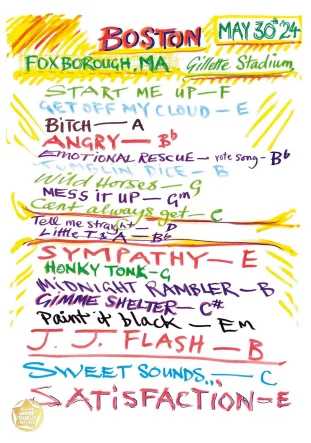 BOSTON
MAY 30th 24
FOXBOROUGH, MA Gillette Stadium
START ME UP — F
GET OFF MY CLOUD — E
BITCH — A
ANGRY — Bb
EMOTIONAL RESCUE — vote song — Bb
TUMBLIN DICE — B
Wild Horses — G
MESS it UP — Gm
Can't always get — C
Tell me straight — D
Little T & A — Bb
SYMPATHY — E
HONKY TONK — G
MIDNIGHT RAMBLER — B
GIMME SHELTER — C#
Paint it black — Em
J. J. FLASH — B
SWEET SOUNDS... — C
SATISFACTION — E